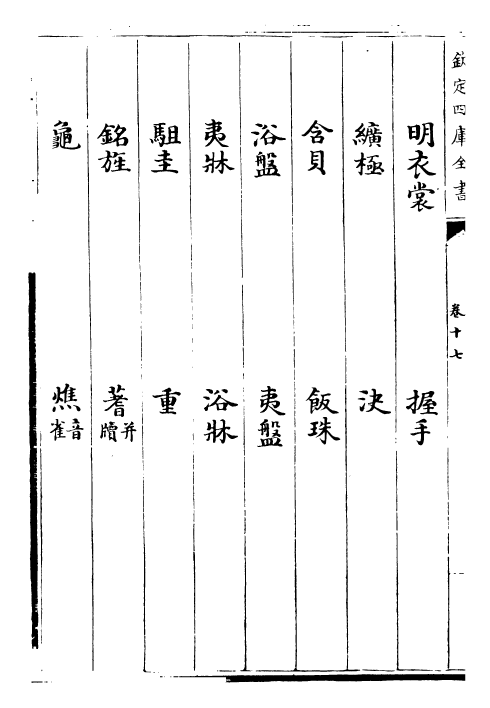 欽定四庫全書
卷十七
明衣裳 握手
纊極 決
含貝 飯珠
浴盤 夷盤
夷牀 浴牀
駔圭 重
銘旌 蓍并牘
龜 燋音雀